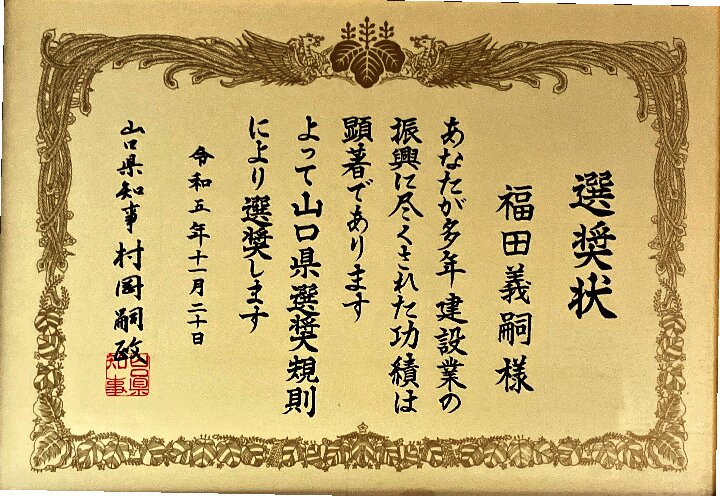 選奨状
福田義嗣様
あなたが多年建設業の
振興に尽くされた功績は
顕著であります
よって山口県選奨規則
により選奨します
令和五年十一月二十日
山口県知事 村岡嗣政
山口県
知事